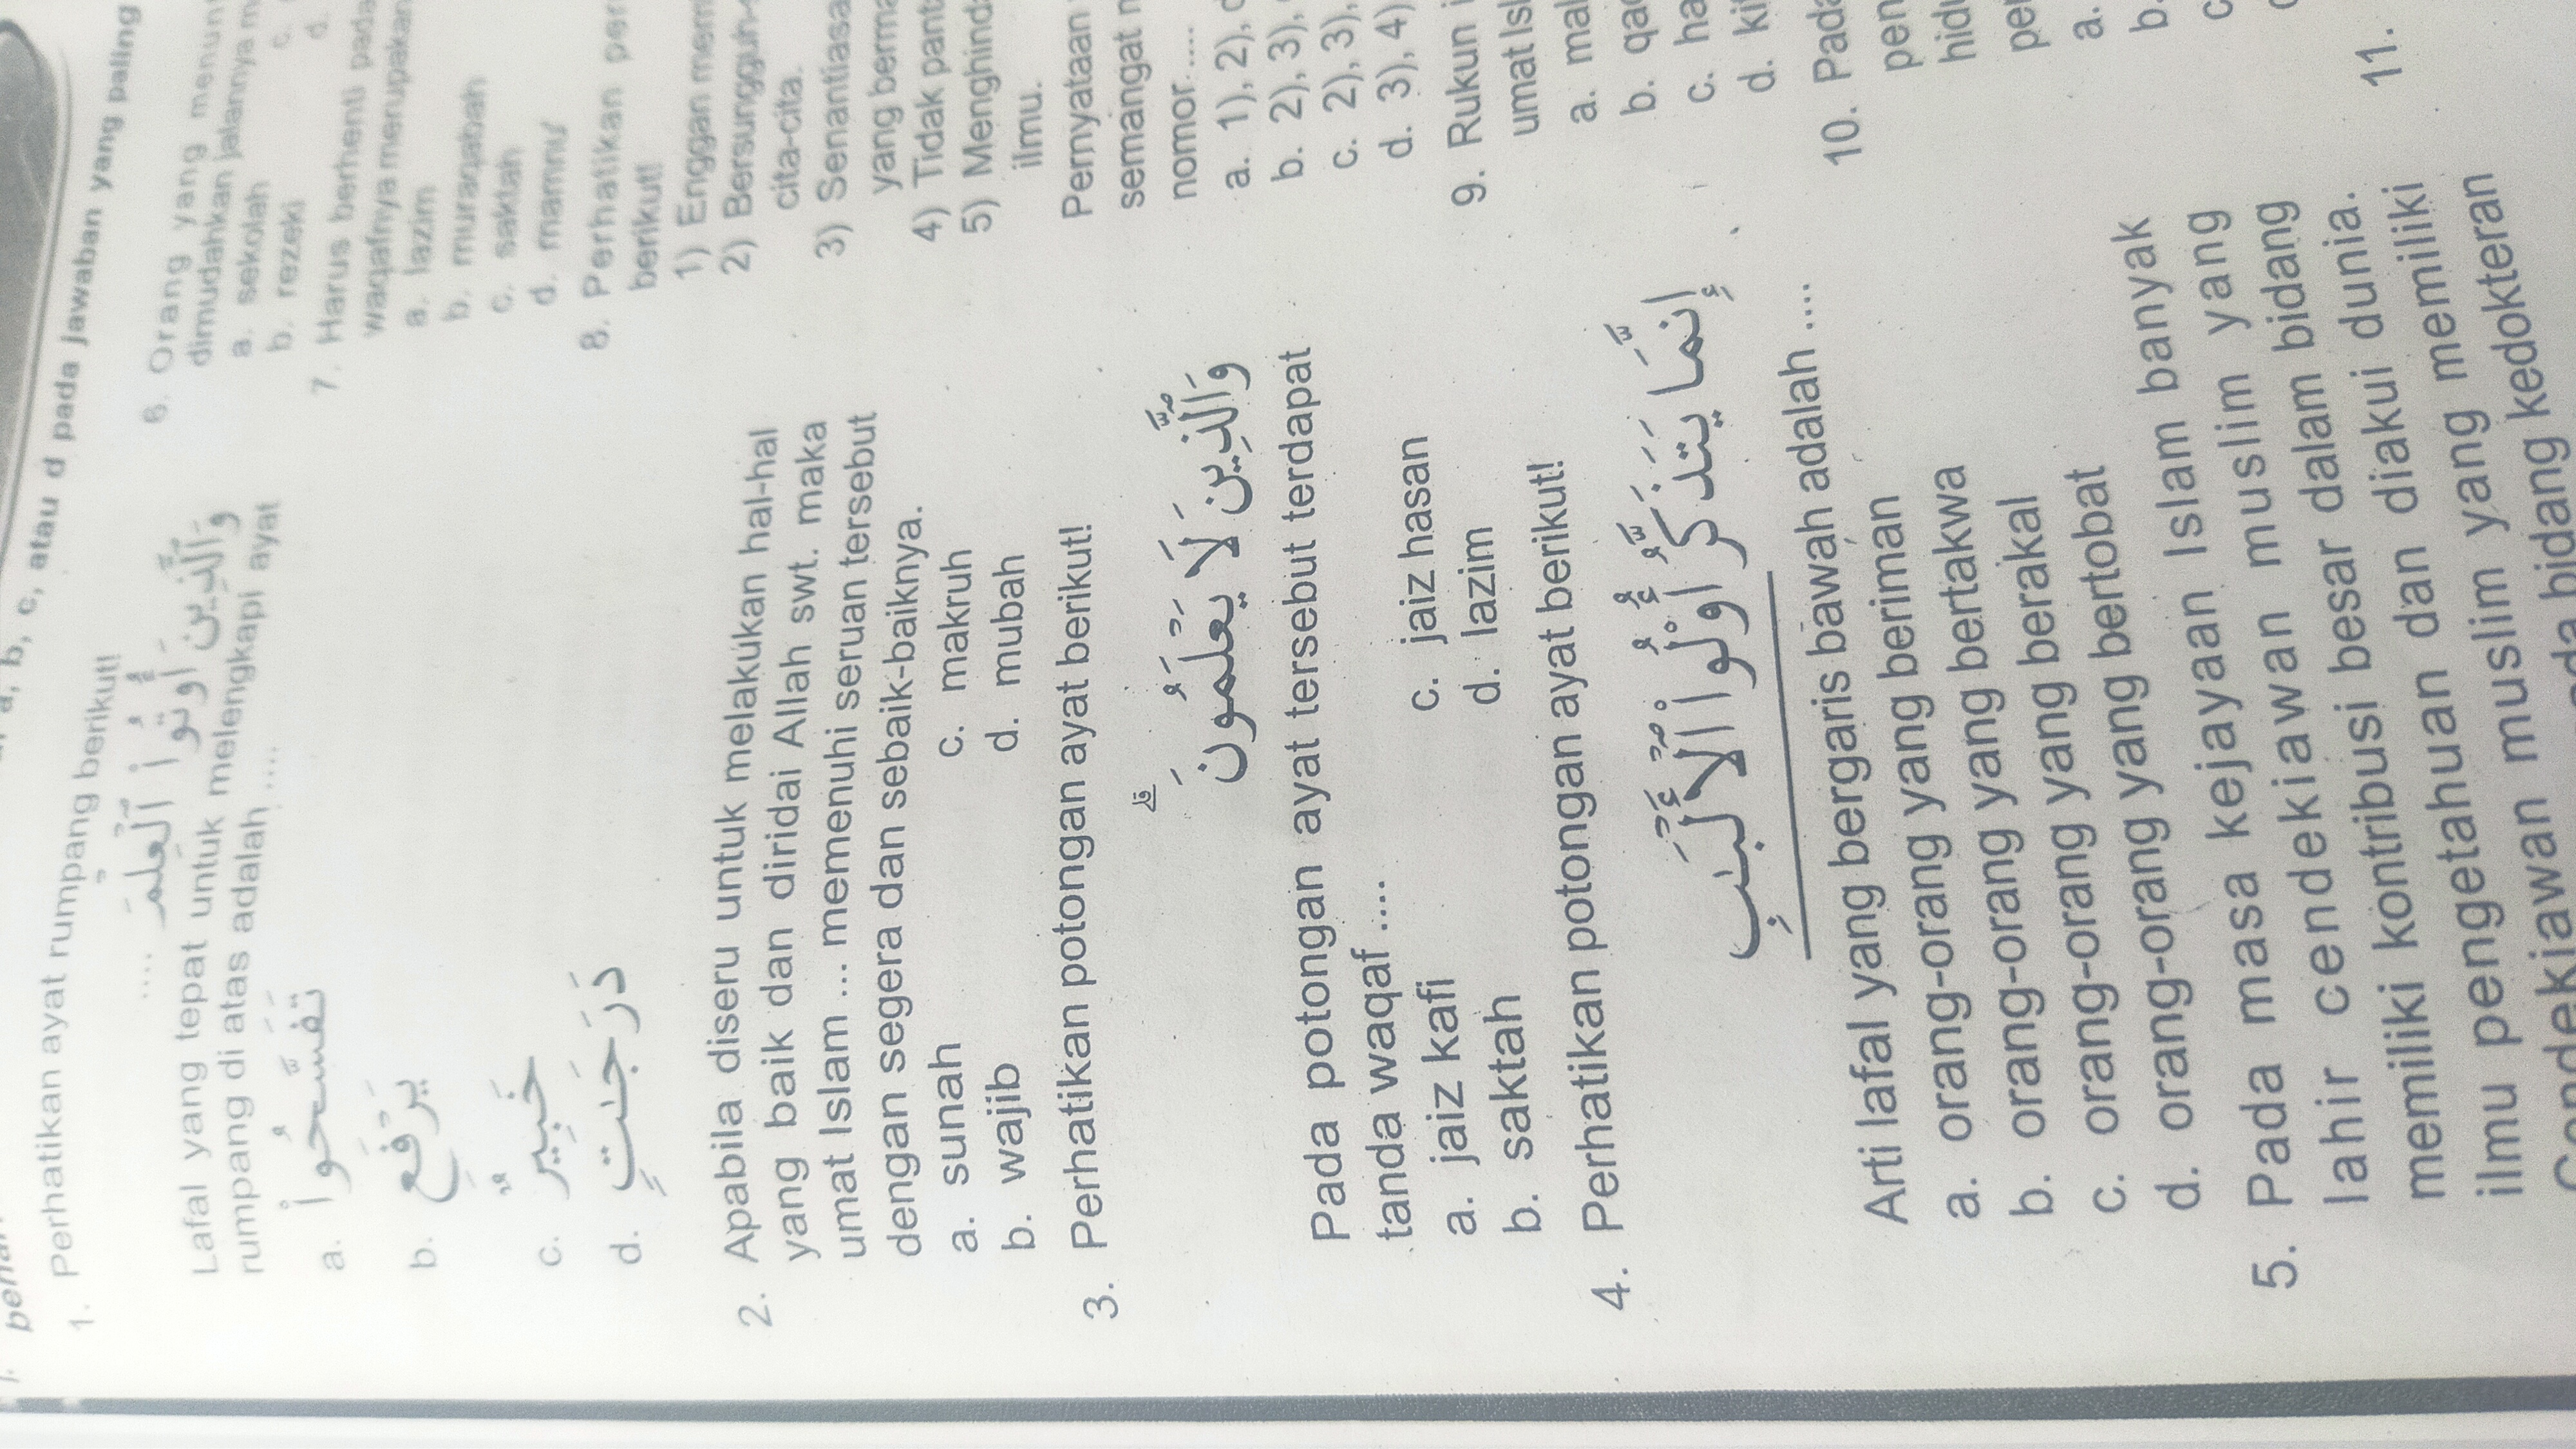 a, b, c, atau d pada jawaban yang paling
1. Perhatikan ayat rumpang berikut!
وَالَّذِيْنَ أُوْتُوا الْعِلْمَ ....
Lafal yang tepat untuk melengkapi ayat
rumpang di atas adalah ....
a. تَفَسَّحُوْا
b. يَرْفَعِ
c. خَبِيْرٌ
d. دَرَجٰتٍ
2. Apabila diseru untuk melakukan hal-hal
yang baik dan diridai Allah swt. maka
umat Islam ... memenuhi seruan tersebut
dengan segera dan sebaik-baiknya.
a. sunah
b. wajib
c. makruh
d. mubah
3. Perhatikan potongan ayat berikut!
وَالَّذِيْنَ لَا يَعْلَمُوْنَ ۗ
Pada potongan ayat tersebut terdapat
tanda waqaf ....
a. jaiz kafi
b. saktah
c. jaiz hasan
d. lazim
4. Perhatikan potongan ayat berikut!
إِنَّمَا يَتَذَكَّرُ أُولُوا الْأَلْبَابِ
Arti lafal yang bergaris bawah adalah ....
a. orang-orang yang beriman
b. orang-orang yang bertakwa
c. orang-orang yang berakal
d. orang-orang yang bertobat
5. Pada masa kejayaan Islam banyak
lahir cendekiawan muslim yang
memiliki kontribusi besar dalam bidang
ilmu pengetahuan dan diakui dunia.
Cendekiawan muslim yang memiliki
pada bidang kedokteran
6. Orang yang
dimudahkan jalannya
a. sekolah
b. rezeki
c.
d.
7. Harus berhenti pada
waqafnya merupakan
a. lazim
b. muraqabah
c. saktah
d. mamnu'
8. Perhatikan
berikut!
1) Enggan
2) Bersungguh-
cita-cita.
3) Senantiasa
yang
4) Tidak
5) Menghind
ilmu.
Pernyataan
semangat
nomor ....
a. 1), 2),
b. 2), 3),
c. 2), 3),
d. 3), 4)
9. Rukun
umat
a.
b.
c.
d.
10. Pada
a.
b.
c
11.